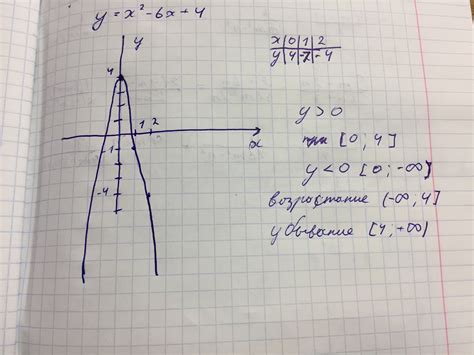 y = x² - 6x + 4
y
4
1 2
x
-1
-4
x|0|1|2
y|4|-1|-4
y > 0
при [0; 4]
y < 0 [0; -∞)
возрастание (-∞, 4]
убывание [4, +∞)